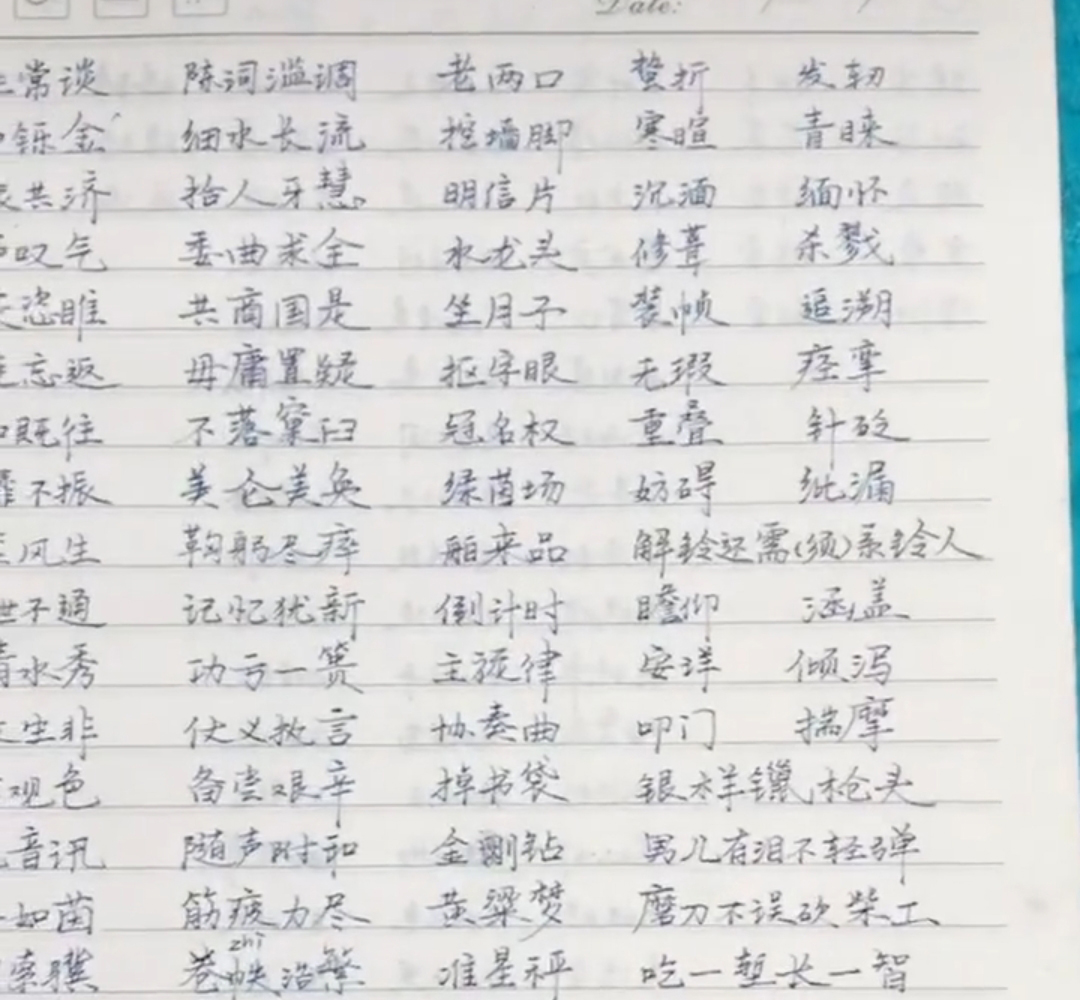 Date:
常谈 陈词滥调 老两口 蜇折 发轫
铄金 细水长流 挖墙脚 寒暄 青睐
共济 拾人牙慧 明信片 沉湎 缅怀
叹气 委曲求全 水龙头 修葺 杀戮
恣睢 共商国是 坐月子 装帧 追溯
忘返 毋庸置疑 抠字眼 无瑕 痉挛
既往 不落窠臼 冠名权 重叠 针砭
不振 美仑美奂 绿茵场 妨碍 纰漏
风生 鞠躬尽瘁 舶来品 解铃还需(须)系铃人
不通 记忆犹新 倒计时 瞻仰 涵盖
水秀 功亏一篑 主旋律 安详 倾泻
生非 仗义执言 协奏曲 叩门 揣摩
观色 备尝艰辛 掉书袋 银样镴枪头
音讯 随声附和 金刚钻 男儿有泪不轻弹
如茵 筋疲力尽 黄粱梦 磨刀不误砍柴工
zhì
索骥 卷帙浩繁 准星秤 吃一堑长一智